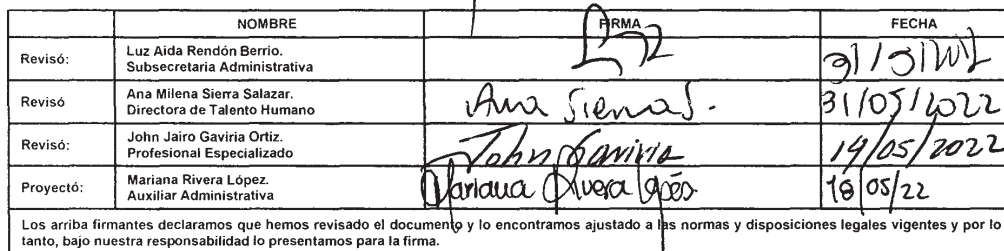 NOMBRE FIRMA FECHA
Revisó: Luz Aida Rendón Berrio.
Subsecretaria Administrativa
Revisó Ana Milena Sierra Salazar.
Directora de Talento Humano Ana Sierra S. 31/05/2022
Revisó: John Jairo Gaviria Ortiz.
Profesional Especializado John Gaviria 19/05/2022
Proyectó: Mariana Rivera López.
Auxiliar Administrativa Mariana Rivera López 18/05/22
Los arriba firmantes declaramos que hemos revisado el documento y lo encontramos ajustado a las normas y disposiciones legales vigentes y por lo
tanto, bajo nuestra responsabilidad lo presentamos para la firma.